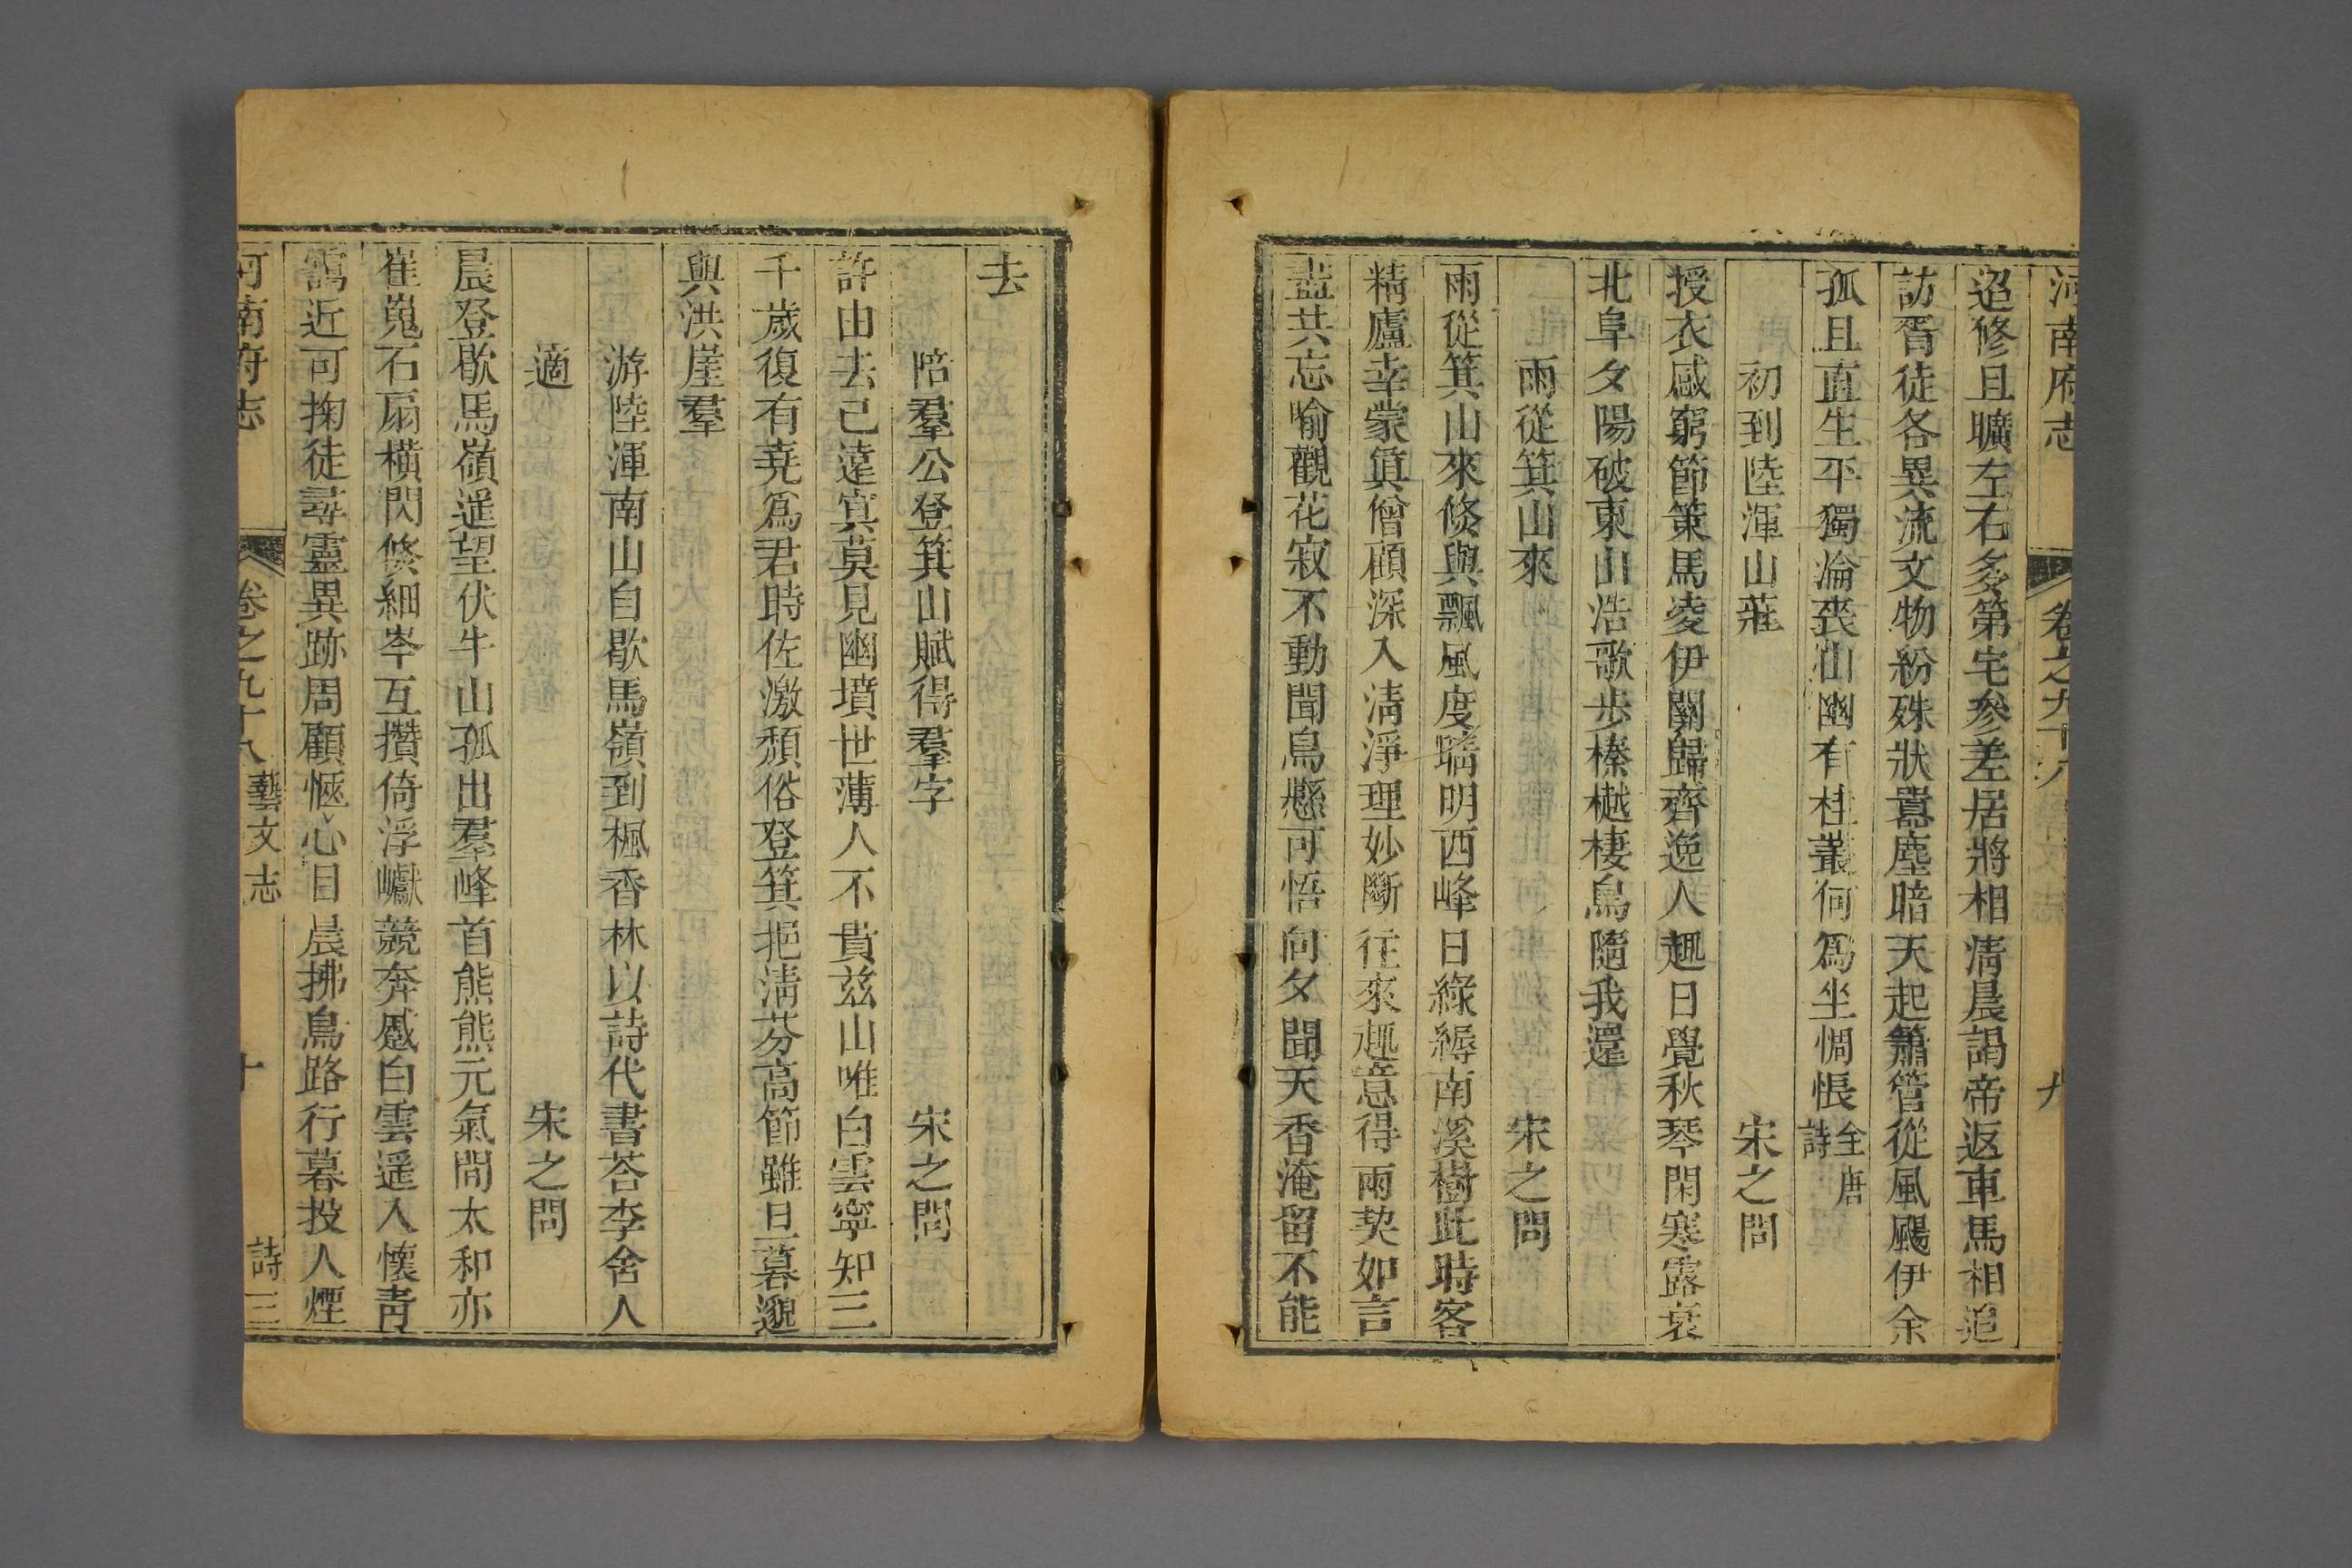 河南府志 卷之九十八 藝文志 九
迢修且曠左右多第宅參差居將相清晨謁帝返車馬相追
訪胥徒各異流文物紛殊狀囂塵暗天起簫管從風颺伊余
孤且直生平獨淪喪山幽有桂叢何爲坐惆悵全唐詩
初到陸渾山莊 宋之問
授衣感窮節策馬凌伊關歸齊逸人趣日覺秋琴閑寒露衰
北阜夕陽破東山浩歌步榛樾棲鳥隨我還
雨從箕山來 宋之問
雨從箕山來倐與飄風度晴明西峰日綠縟南溪樹此時客
精廬幸蒙眞僧顧深入淸淨理妙斷往來趣意得兩契如言
盡共忘喻觀花寂不動聞鳥懸可悟向夕聞天香淹留不能
去
陪羣公登箕山賦得羣字 宋之問
許由去已遠冥莫見幽墳世薄人不貴兹山唯白雲寧知三
千歲復有堯爲君時佐激頹俗登箕挹淸芬高節雖旦暮邈
與洪崖羣
游陸渾南山自歇馬嶺到楓香林以詩代書荅李舍人
適 宋之問
晨登歇馬嶺遥望伏牛山孤出羣峰首熊熊元氣間太和亦
崔嵬石扇橫閃倐細岑互攢倚浮巘競奔蹙白雲遥入懷靑
靄近可掬徒尋靈異跡周顧愜心目晨拂鳥路行暮投人煙
河南府志 卷之九十八 藝文志 詩三 十